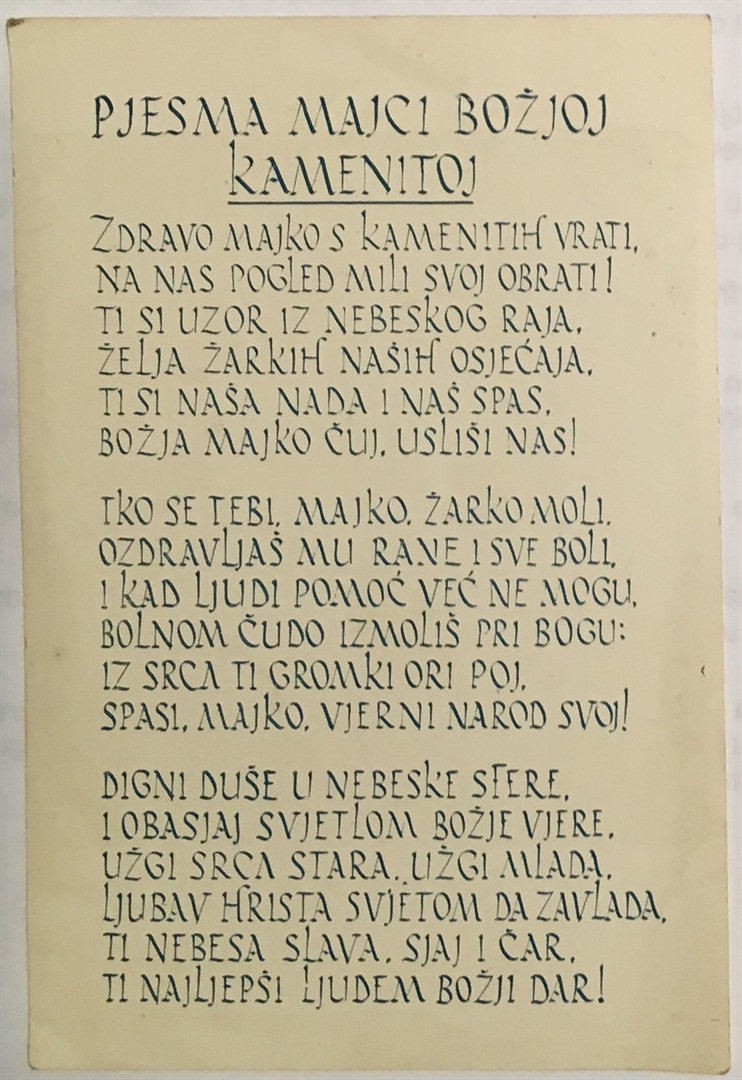 PJESMA MAJCI BOŽJOJ
KAMENITOJ
ZDRAVO MAJKO S KAMENITIH VRATI,
NA NAS POGLED MILI SVOJ OBRATI!
TI SI UZOR IZ NEBESKOG RAJA,
ŽELJA ŽARKIH NAŠIH OSJEĆAJA,
TI SI NAŠA NADA I NAŠ SPAS,
BOŽJA MAJKO ČUJ, USLIŠI NAS!
TKO SE TEBI, MAJKO, ŽARKO MOLI,
OZDRAVLJAŠ MU RANE I SVE BOLI,
I KAD LJUDI POMOĆ VEĆ NE MOGU,
BOLNOM ČUDO IZMOLIŠ PRI BOGU:
IZ SRCA TI GROMKI ORI POJ,
SPASI, MAJKO, VJERNI NAROD SVOJ!
DIGNI DUŠE U NEBESKE SFERE,
I OBASJAJ SVJETLOM BOŽJE VJERE,
UŽGI SRCA STARA, UŽGI MLADA,
LJUBAV HRISTA SVJETOM DA ZAVLADA,
TI NEBESA SLAVA, SJAJ I ČAR,
TI NAJLJEPŠI LJUDEM BOŽJI DAR!